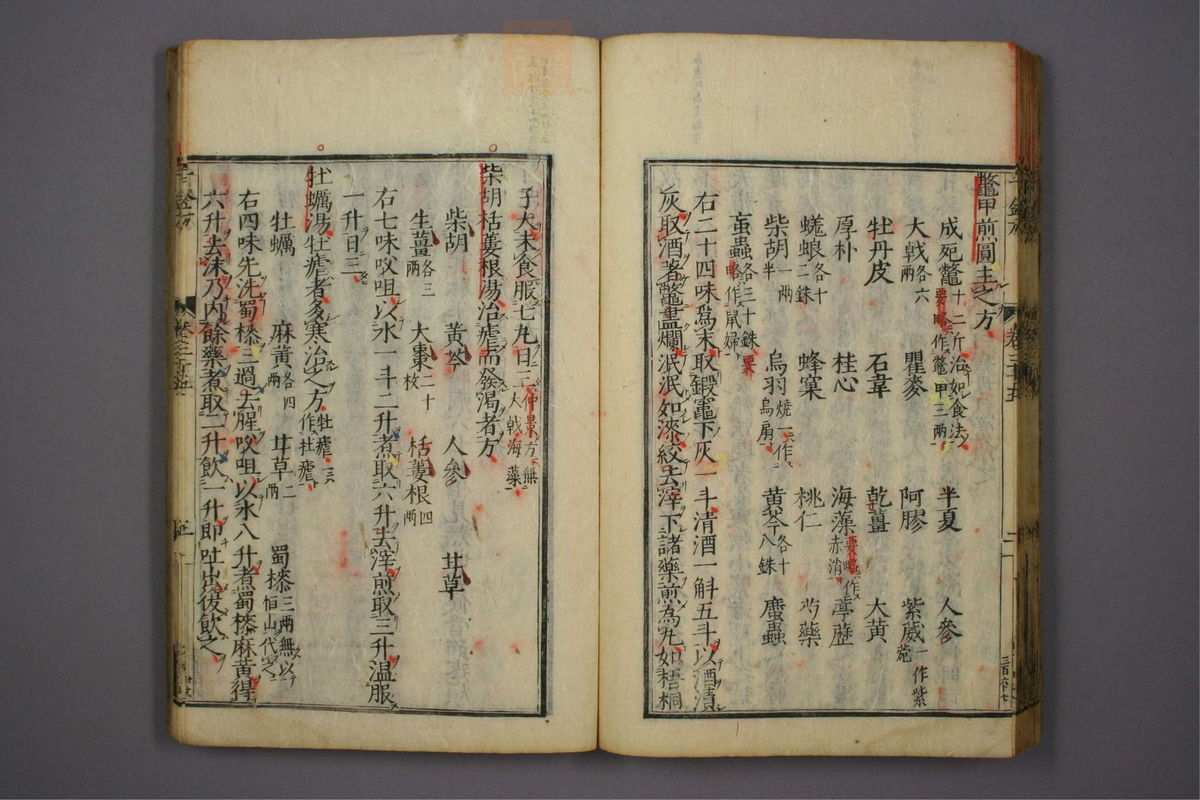 鼈甲煎圓主之方
成死鼈十二斤治如食法要略作鼈甲三兩 半夏 人參
大戟各六兩 瞿麥 阿膠 紫葳一作紫菀
牡丹皮 石韋 乾薑 大黃
厚朴 桂心 海藻要略作赤消 葶藶
蜣蜋各十二銖 蜂窠 桃仁 芍藥
柴胡一兩半 烏羽燒一作烏扇 黃芩各十八銖 䗪蟲
䖟蟲各三十銖要略作鼠婦
右二十四味爲末取鍛竈下灰一斗清酒一斛五斗以酒漬
灰取酒著鼈盡爛泯泯如漆絞去滓下諸藥煎為丸如梧桐
子大末食服七丸日三仲景方無大戟海藻
柴胡栝蔞根湯治瘧而發渴者方
柴胡 黃芩 人參 甘草
生薑各三兩 大棗二十枚 栝蔞根四兩
右七味㕮咀以水一斗二升煮取六升去滓煎取三升温服
一升日三
牡蠣湯牡瘧者多寒治之方牡瘧一云作牡瘧
牡蠣 麻黃各四兩 甘草二兩 蜀㮶三兩無以恒山代之
右四味先洗蜀㮶三過去腥㕮咀以水八升煮蜀㮶麻黃得
六升去沫乃內餘藥煮取二升飲一升即吐出後飲之